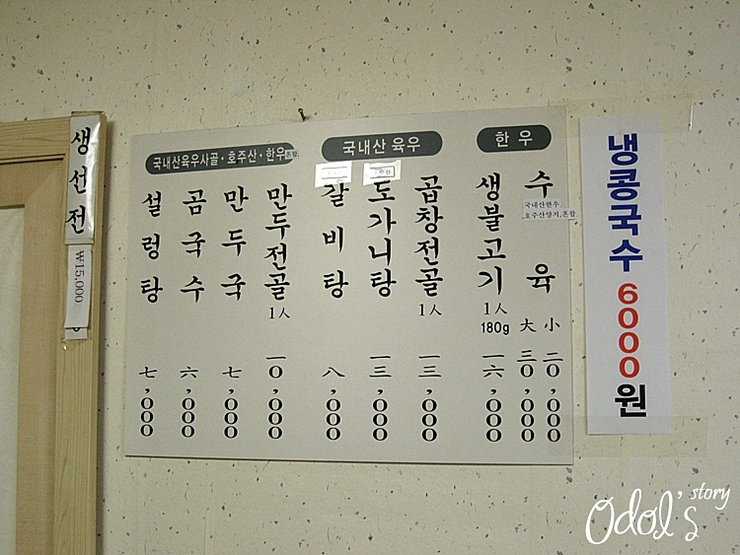 생선전
₩15,000
국내산육우사골·호주산·한우혼합
설렁탕
七,000
곰국수
六,000
만두국
七,000
만두전골
1人
一0,000
국내산 육우
갈비탕
八,000
도가니탕
一三,000
곱창전골
1人
一三,000
한우
생불고기
1人
180g
一六,000
수육
국내산한우
호주산양지.혼합
大 小
三0,000
二0,000
냉콩국수 6000원
Odol's story